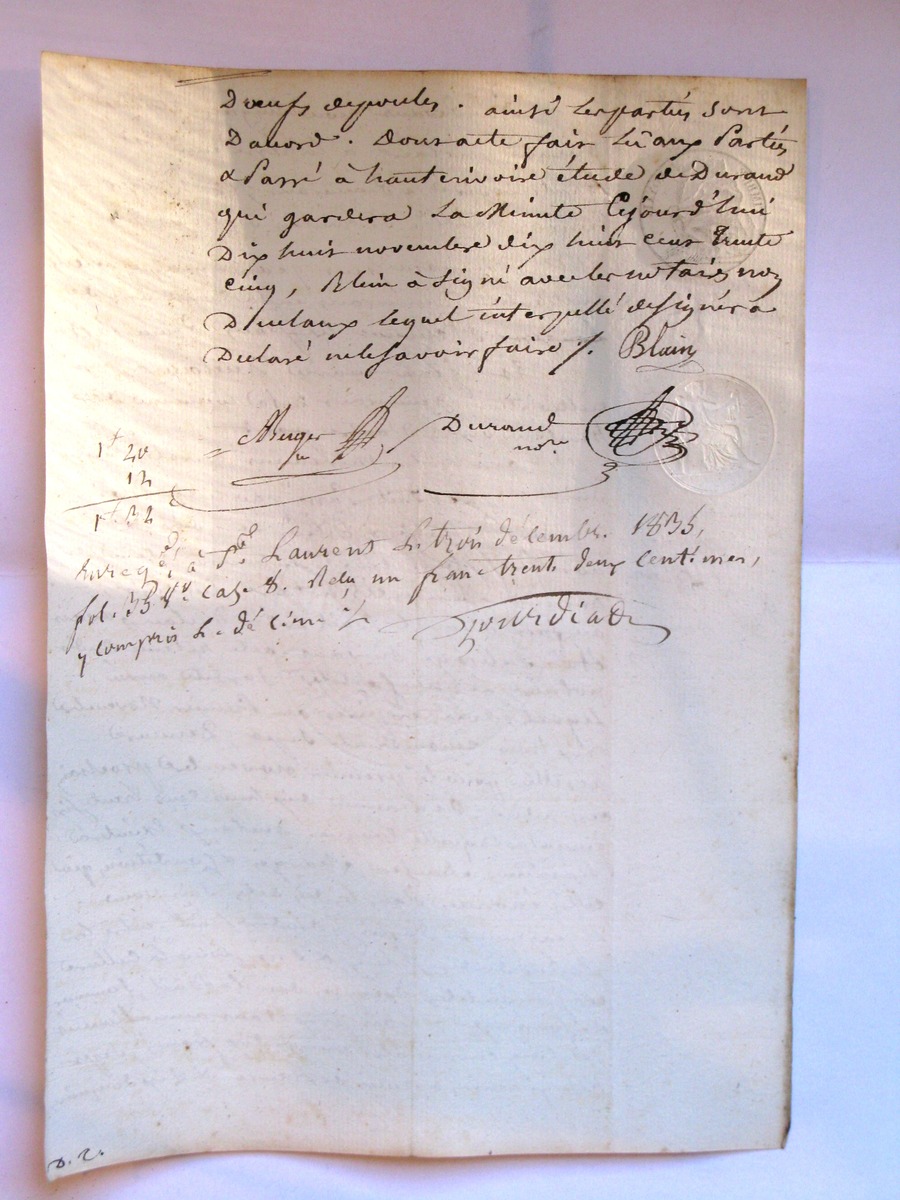 D'oeufs de poules. ainsi les parties sont
D'accord. Dont acte fait lû aux Parties
& Passé à hauterivoire étude de Durand
qui gardera la Minute Cejourd'hui
Dix huit novembre dix huit cent trente
cinq, Blein à signé avec les notaires non
Duclaux lequel interpellé de signer a
Declaré ne le savoir faire ./. Blain
Durand
nore
1f 20
12
1f. 32
Enregé. à St. Laurent le trois décembre. 1835,
fol. 33 vo. case 8. Reçu un franc trente deux centimes,
y compris le décime ./.
D. 2.